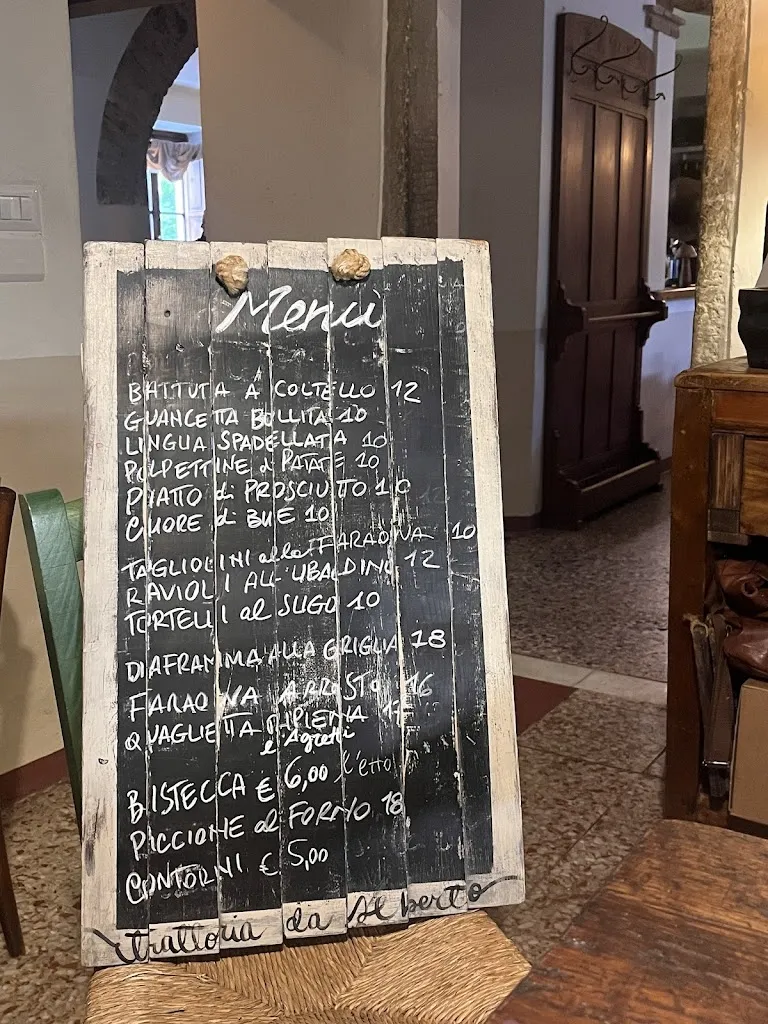 Menù
BATTUTA A COLTELLO 12
GUANCETTA BOLLITA 10
LINGUA SPADELLATA 10
POLPETTINE di PATATE 10
PIATTO di PROSCIUTTO 10
CUORE di BUE 10
TAGLIOLINI alla FARAONA 10
RAVIOLI ALL'UBALDINO 12
TORTELLI al SUGO 10
DIAFRAMMA ALLA GRIGLIA 18
FARAONA ARROSTO 16
QUAGLIETTA RIPIENA
e Agretti
BISTECCA € 6,00 l'etto
PICCIONE al FORNO 18
CONTORNI € 5,00
trattoria da Alberto